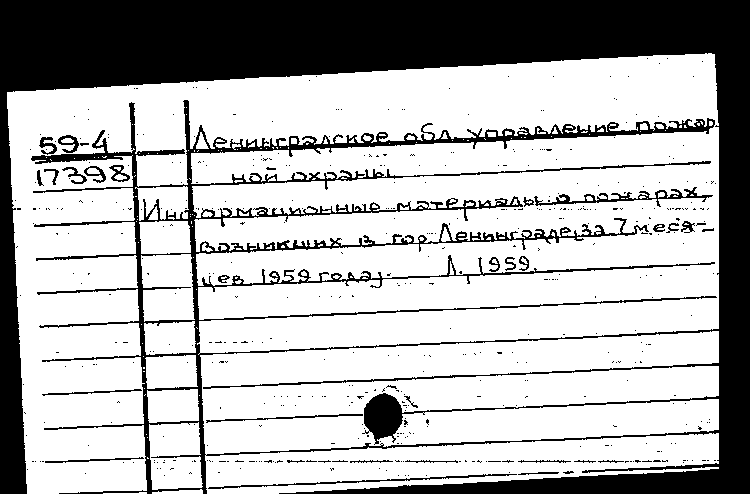 59-4 Ленинградское обл. управление пожар
17398 ной охраны
Информационные материалы о пожарах,
возникших в гор. Ленинграде [за 7 меся-
цев 1959 года]. Л., 1959.